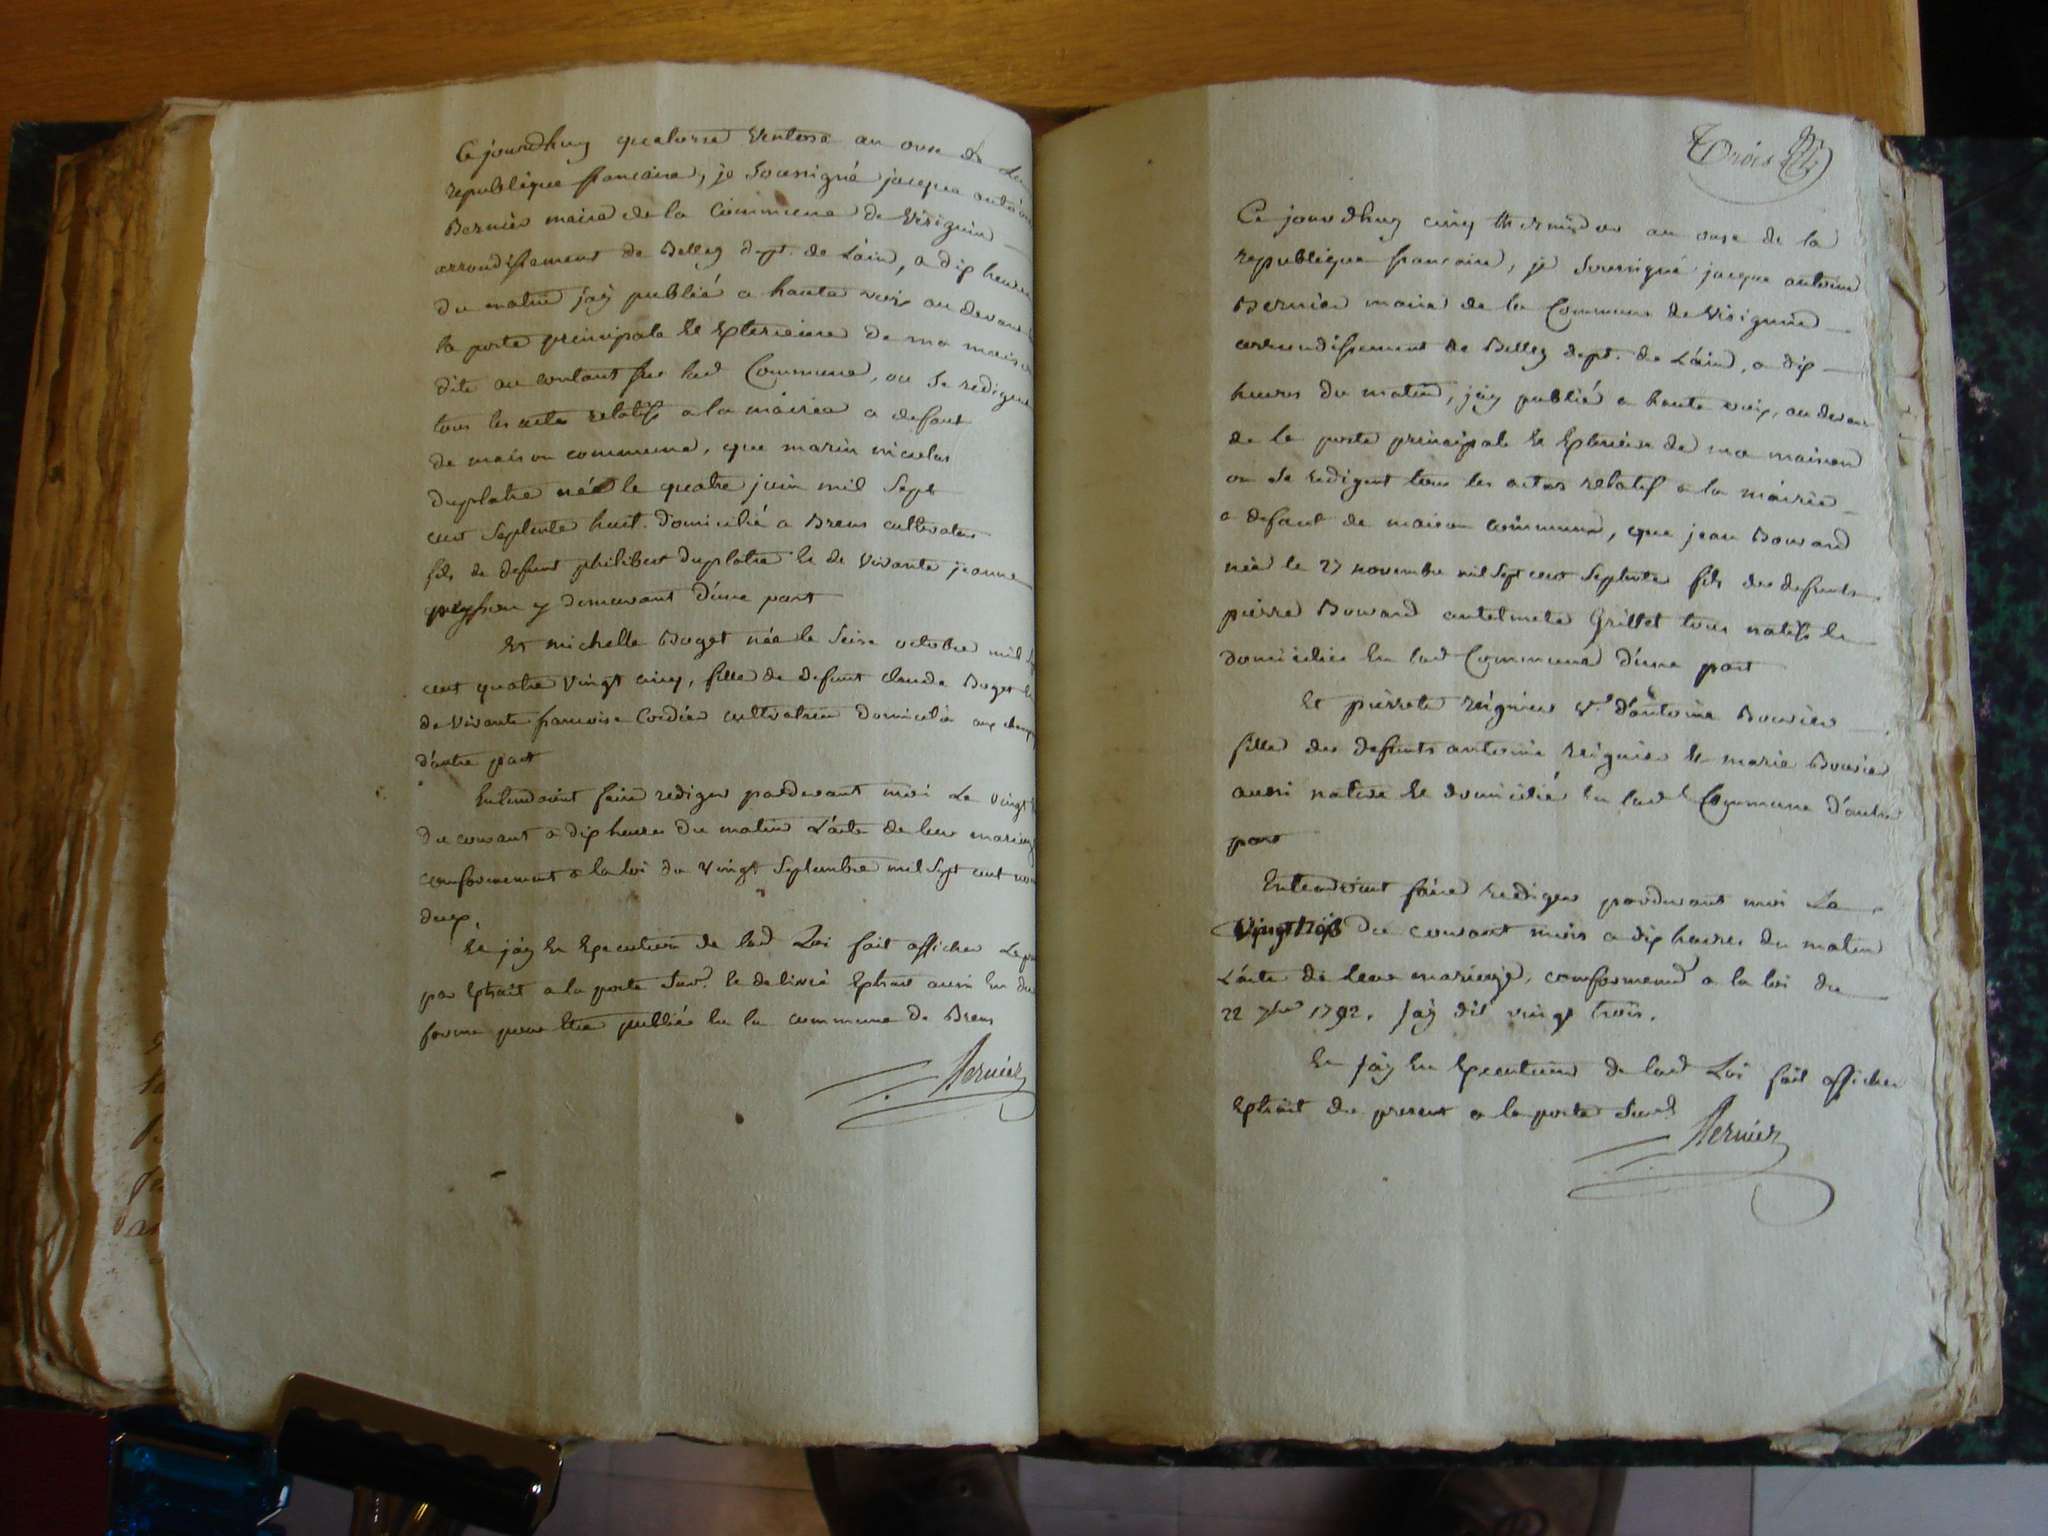 Ce jourdhuy quatorse Ventose an onse de La
republique francaise, je Soussigné jacque antoine
Bernier maire de la Commune de Virignin
arrondissement de Belley dept. de L'ain, a dix heures
du matin j'ay publié a haute voix au devant
la porte principale et Exterieure de ma maison
dite au contant sur lad Commune, ou se redigent
tous les acte relatifs a la mairie a defaut
de maison commune, que marin nicolas
duplatre née le quatre juin mil Sept
cent Septente huit. domicilié a Brens cultivateur
fils de defunt philibert duplatre et de Vivante jeanne
y demeurant d'une part
Et michelle Boget née le Seise octobre mil
cent quatre Vingt cinq, fille de defunt claude Boget et
de Vivante francoise Cordier cultivatrice domicilié aux
d'autre part
Entendoint faire rediger pardevant moi Le Vingt
du courant a dix heures du matin L'acte de leur mariage
conformement a la loi du Vingt Septembre mil Sept cent
deux.
Et j'ay En Execution de lad Loi fait afficher Le
par Extrait a la porte Sud. et delivré Extrait aussi En due
forme pour Etre publiée En la commune de Brens
Bernier
Trois
Ce jourdhuy cinq thermidor an onse de la
republique francaise, je Soussigné jacque antoine
Bernier maire de la Commune de Virignin
arrondissement de Belley dept. de L'ain, a dix
heures du matin, j'ay publié a haute voix, au devant
de la porte principale et Exterieure de ma maison
ou se redigent tous les actes relatif a la mairie
a defaut de maison commune, que jean Bouvard
née le 27 novembre mil Sept cent Septente fils des defunts
pierre Bouvard antelmete Grillet tous natifs et
domiciliés En lad Commune d'une part
Et pierrete reignier Ve d'antoine Bouvier
fille des defunts antoine reignier et marie Bouvier
aussi native et domicilié En lad Commune d'autre
part
Entendoint faire rediger pardevant moi Le
Vingt trois du courant mois a dix heures du matin
L'acte de leur mariage, conformemt a la loi du
22 7bre 1792. j'ay dit vingt trois.
Et j'ay En Execution de lad Loi fait afficher
Extrait du present a la porte Sud
Bernier